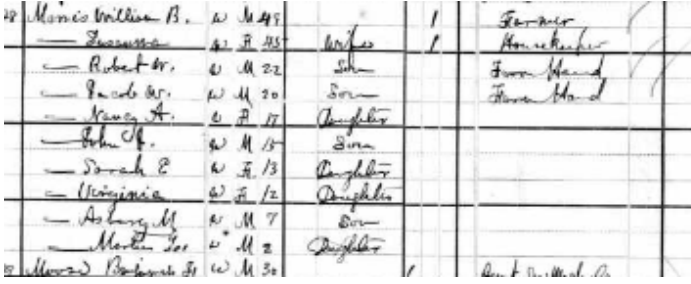 Morris William B. W M 48 1 Farmer
— Susanna W F 45 Wife 1 Housekeeper
— Robert W. W M 22 Son Farm Hand
— Jacob W. W M 20 Son Farm Hand
— Nancy A. W F 17 Daughter
— John W M 15 Son
— Sarah E W F 13 Daughter
— Virginia W F 12 Daughter
— Asbury M W M 7 Son
— W M 2 Daughter
Moore W M 30 1